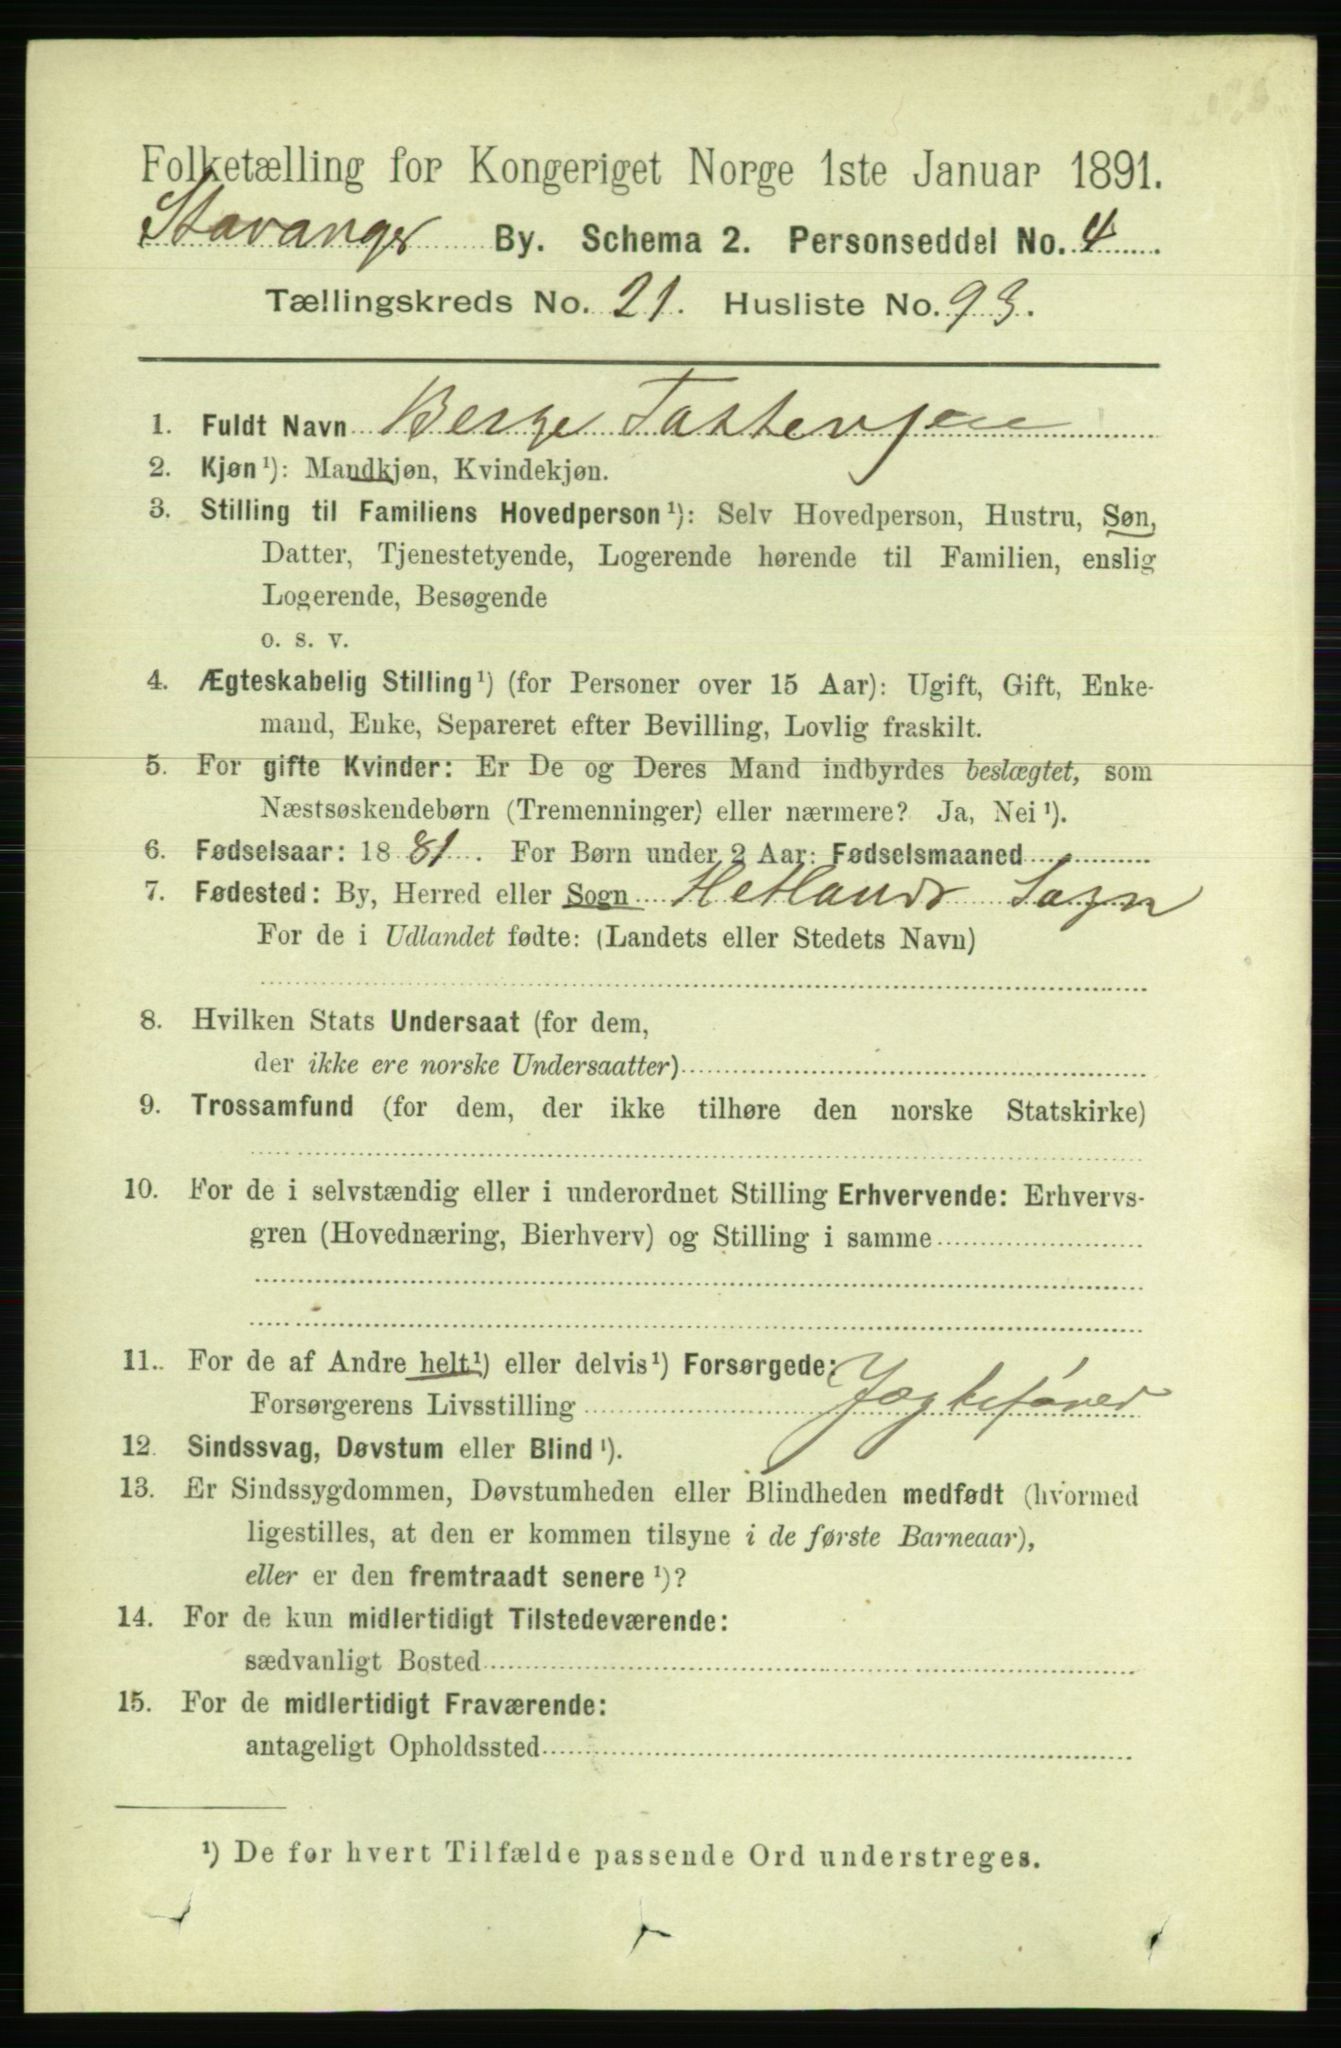 Folketælling for Kongeriget Norge 1ste Januar 1891.
Stavanger By. Schema 2. Personseddel No. 4
Tællingskreds No. 21. Husliste No. 93.
1. Fuldt Navn Berge Tastensen
2. Kjøn ¹): Mandkjøn, Kvindekjøn.
3. Stilling til Familiens Hovedperson ¹): Selv Hovedperson, Hustru, Søn,
Datter, Tjenestetyende, Logerende hørende til Familien, enslig
Logerende, Besøgende
o. s. v.
4. Ægteskabelig Stilling ¹) (for Personer over 15 Aar): Ugift, Gift, Enke-
mand, Enke, Separeret efter Bevilling, Lovlig fraskilt.
5. For gifte Kvinder: Er De og Deres Mand indbyrdes beslægtet, som
Næstsøskendebørn (Tremenninger) eller nærmere? Ja, Nei ¹).
6. Fødselsaar: 1881. For Børn under 2 Aar: Fødselsmaaned
7. Fødested: By, Herred eller Sogn Hetlands Sogn
For de i Udlandet fødte: (Landets eller Stedets Navn)
8. Hvilken Stats Undersaat (for dem,
der ikke ere norske Undersaatter)
9. Trossamfund (for dem, der ikke tilhøre den norske Statskirke)
10. For de i selvstændig eller i underordnet Stilling Erhvervende: Erhvervs-
gren (Hovednæring, Bierhverv) og Stilling i samme
11. For de af Andre helt ¹) eller delvis ¹) Forsørgede:
Forsørgerens Livsstilling Jægtefører
12. Sindssvag, Døvstum eller Blind ¹).
13. Er Sindssygdommen, Døvstumheden eller Blindheden medfødt (hvormed
ligestilles, at den er kommen tilsyne i de første Barneaar),
eller er den fremtraadt senere ¹)?
14. For de kun midlertidigt Tilstedeværende:
sædvanligt Bosted
15. For de midlertidigt Fraværende:
antageligt Opholdssted
¹) De for hvert Tilfælde passende Ord understreges.